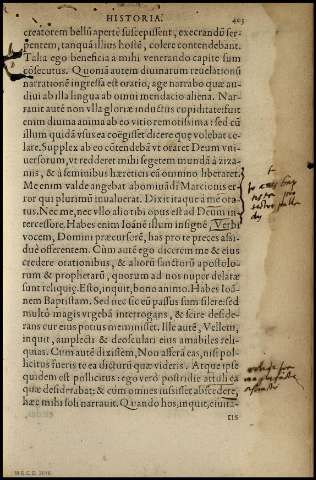 HISTORIA. 403
creatorem bellũ aperte suscepissent, execrandũ ser-
pentem, tanquã illius hostẽ, colere contendebant.
Talia ego beneficia a mihi venerando capite sum
cõsecutus. Quoniã autem diuinarum reuelationũ
narrationẽ ingressa est oratio, age narrabo quæ au-
diui ab illa lingua ab omni mendacio aliena. Nar-
rauit autẽ non vlla gloriæ inductus cupiditate: fuit
enim diuina anima ab eo vitio remotissima: sed cũ
illum quidã vsus ea coëgisset dicere quæ volebat ce-
lare. Supplex ab eo cõtendebã vt oraret Deum vni-
uersorum, vt redderet mihi segetem mundã à ziza-
niis, & à seminibus hæreticis eã omnino liberaret.
Me enim valde angebat abominãdi Marcionis er-
ror qui plurimũ inualuerat. Dixit itaque à mẽ ora-
tus. Nec me, nec vllo alio tibi opus est ad Deum in-
tercessore. Habes enim Ioãnẽ illum insignẽ, Verbi
vocem, Domini præcursorẽ, has pro te preces assi-
duè offerentem. Cùm autẽ ego dicerem me & eius
credere orationibus, & aliorũ sanctorũ apostolo-
rum & prophetarũ, quorum ad nos nuper delatæ
sunt reliquiæ. Esto, inquit, bono animo. Habes Ioã-
nem Baptistam. Sed nec sic eũ passus sum silere: sed
multò magis vrgebã interrogans, & scire deside-
rans cur eius potius meminisset. Ille autẽ, Vellem,
inquit, amplecti & deosculari eius amabiles reli-
quias. Cùm autẽ dixissem, Non afferã eas, nisi pol-
licitus fueris te ea dicturũ quæ videris. Atque ipse
quidem est pollicitus: ego verò postridie attuli ea
quæ desiderabat: & cùm omnes iussisset abscedere,
hæc mihi soli narrauit. Quando hos, inquit, ciuita-
tis